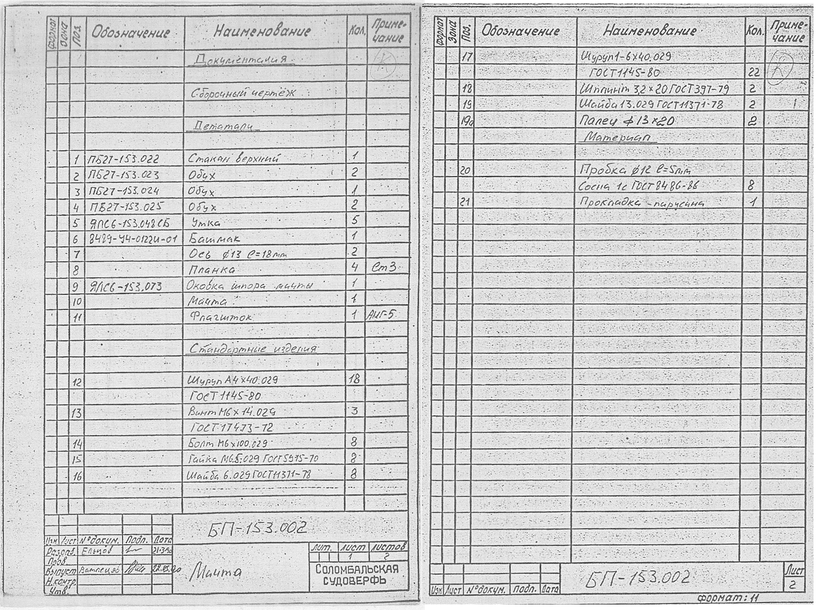 формат Зона Поз. Обозначение Наименование Кол. Приме-чание
Документация
Сборочный чертёж
Детали
1 ПБ27-153.022 Стакан верхний 1
2 ПБ27-153.023 Обух 2
3 ПБ27-153.024 Обух 1
4 ПБ27-153.025 Обух 2
5 ЯЛС6-153.048СБ Утка 5
6 8489-У4-0122И-01 Башмак 1
7 Ось ф13 l=18мм 2
8 Планка 4 Ст3
9 ЯЛС6-153.073 Оковка шпора мачты 1
10 Мачта 1
11 Флагшток 1 АМГ-5
Стандартные изделия
12 Шуруп А4х40.029 18
ГОСТ 1145-80
13 Винт М6х14.029 3
ГОСТ 17473-72
14 Болт М6х100.029 8
15 Гайка М6.5.029 ГОСТ 5915-70 8
16 Шайба 6.029 ГОСТ 11371-78 8
БП-153.002
Изм Лист №докум. Подп. Дата
Разраб.
Пров.
Выпуст
Н.контр.
Утв.
Мачта
Лит. Лист Листов
1 2
СОЛОМБАЛЬСКАЯ
СУДОВЕРФЬ
формат Зона Поз. Обозначение Наименование Кол. Приме-чание
17 Шуруп 1-6х40.029
ГОСТ 1145-80 22
18 Шплинт 3,2х20 ГОСТ 397-79 2
19 Шайба 13.029 ГОСТ 11371-78 2
19а Палец ф13х20 2
Материал
20 Пробка ф12 l=5мм
Сосна 1с ГОСТ 8486-86 8
21 Прокладка-парусина 1
Изм Лист №докум. Подп. Дата
БП-153.002
Лист
2
Формат: 11